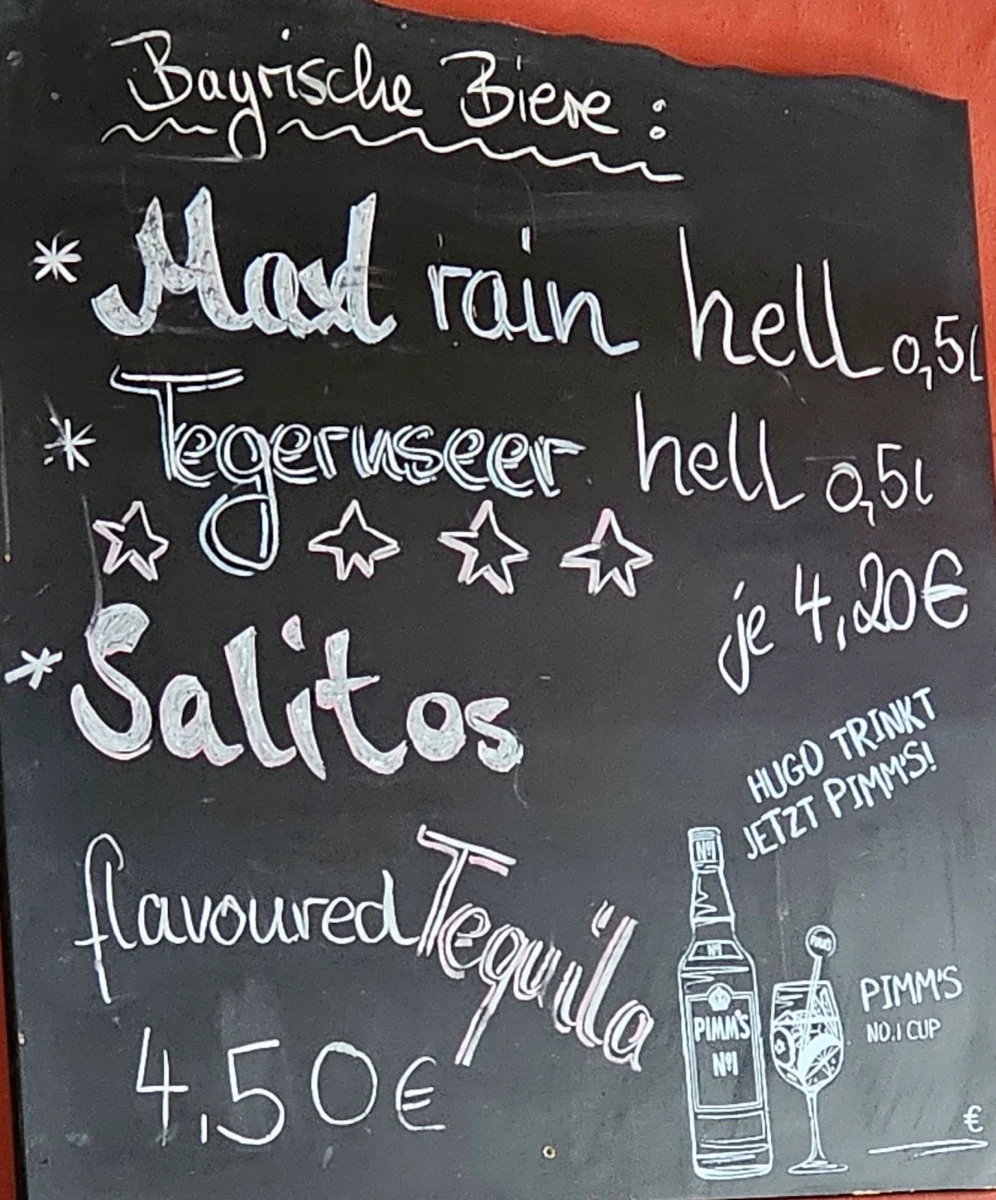 Bayrische Biere:
* Maxl rain hell 0,5l
* Tegernseer hell 0,5l
je 4,20€
* Salitos
flavoured Tequila
4,50€
HUGO TRINKT
JETZT PIMM'S!
Nº1
Nº1
PIMM'S
Nº1
PIMM'S
PIMM'S
NO.1 CUP
€